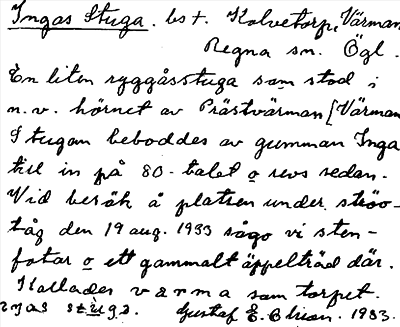 Ingas Stuga. bst. Kalvetorp, Värman
Regna sn. Ögl.
En liten ryggåsstuga som stod i
n.v. hörnet av Prästvärman [Värman
Stugan beboddes av gumman Inga
till in på 80-talet o revs sedan.
Vid besök å platsen under ströv-
tåg den 19 aug. 1933 sågo vi sten-
fotar o ett gammalt äppelträd där.
Kallades värma som torpet.
Gustaf E. Elison. 1933.